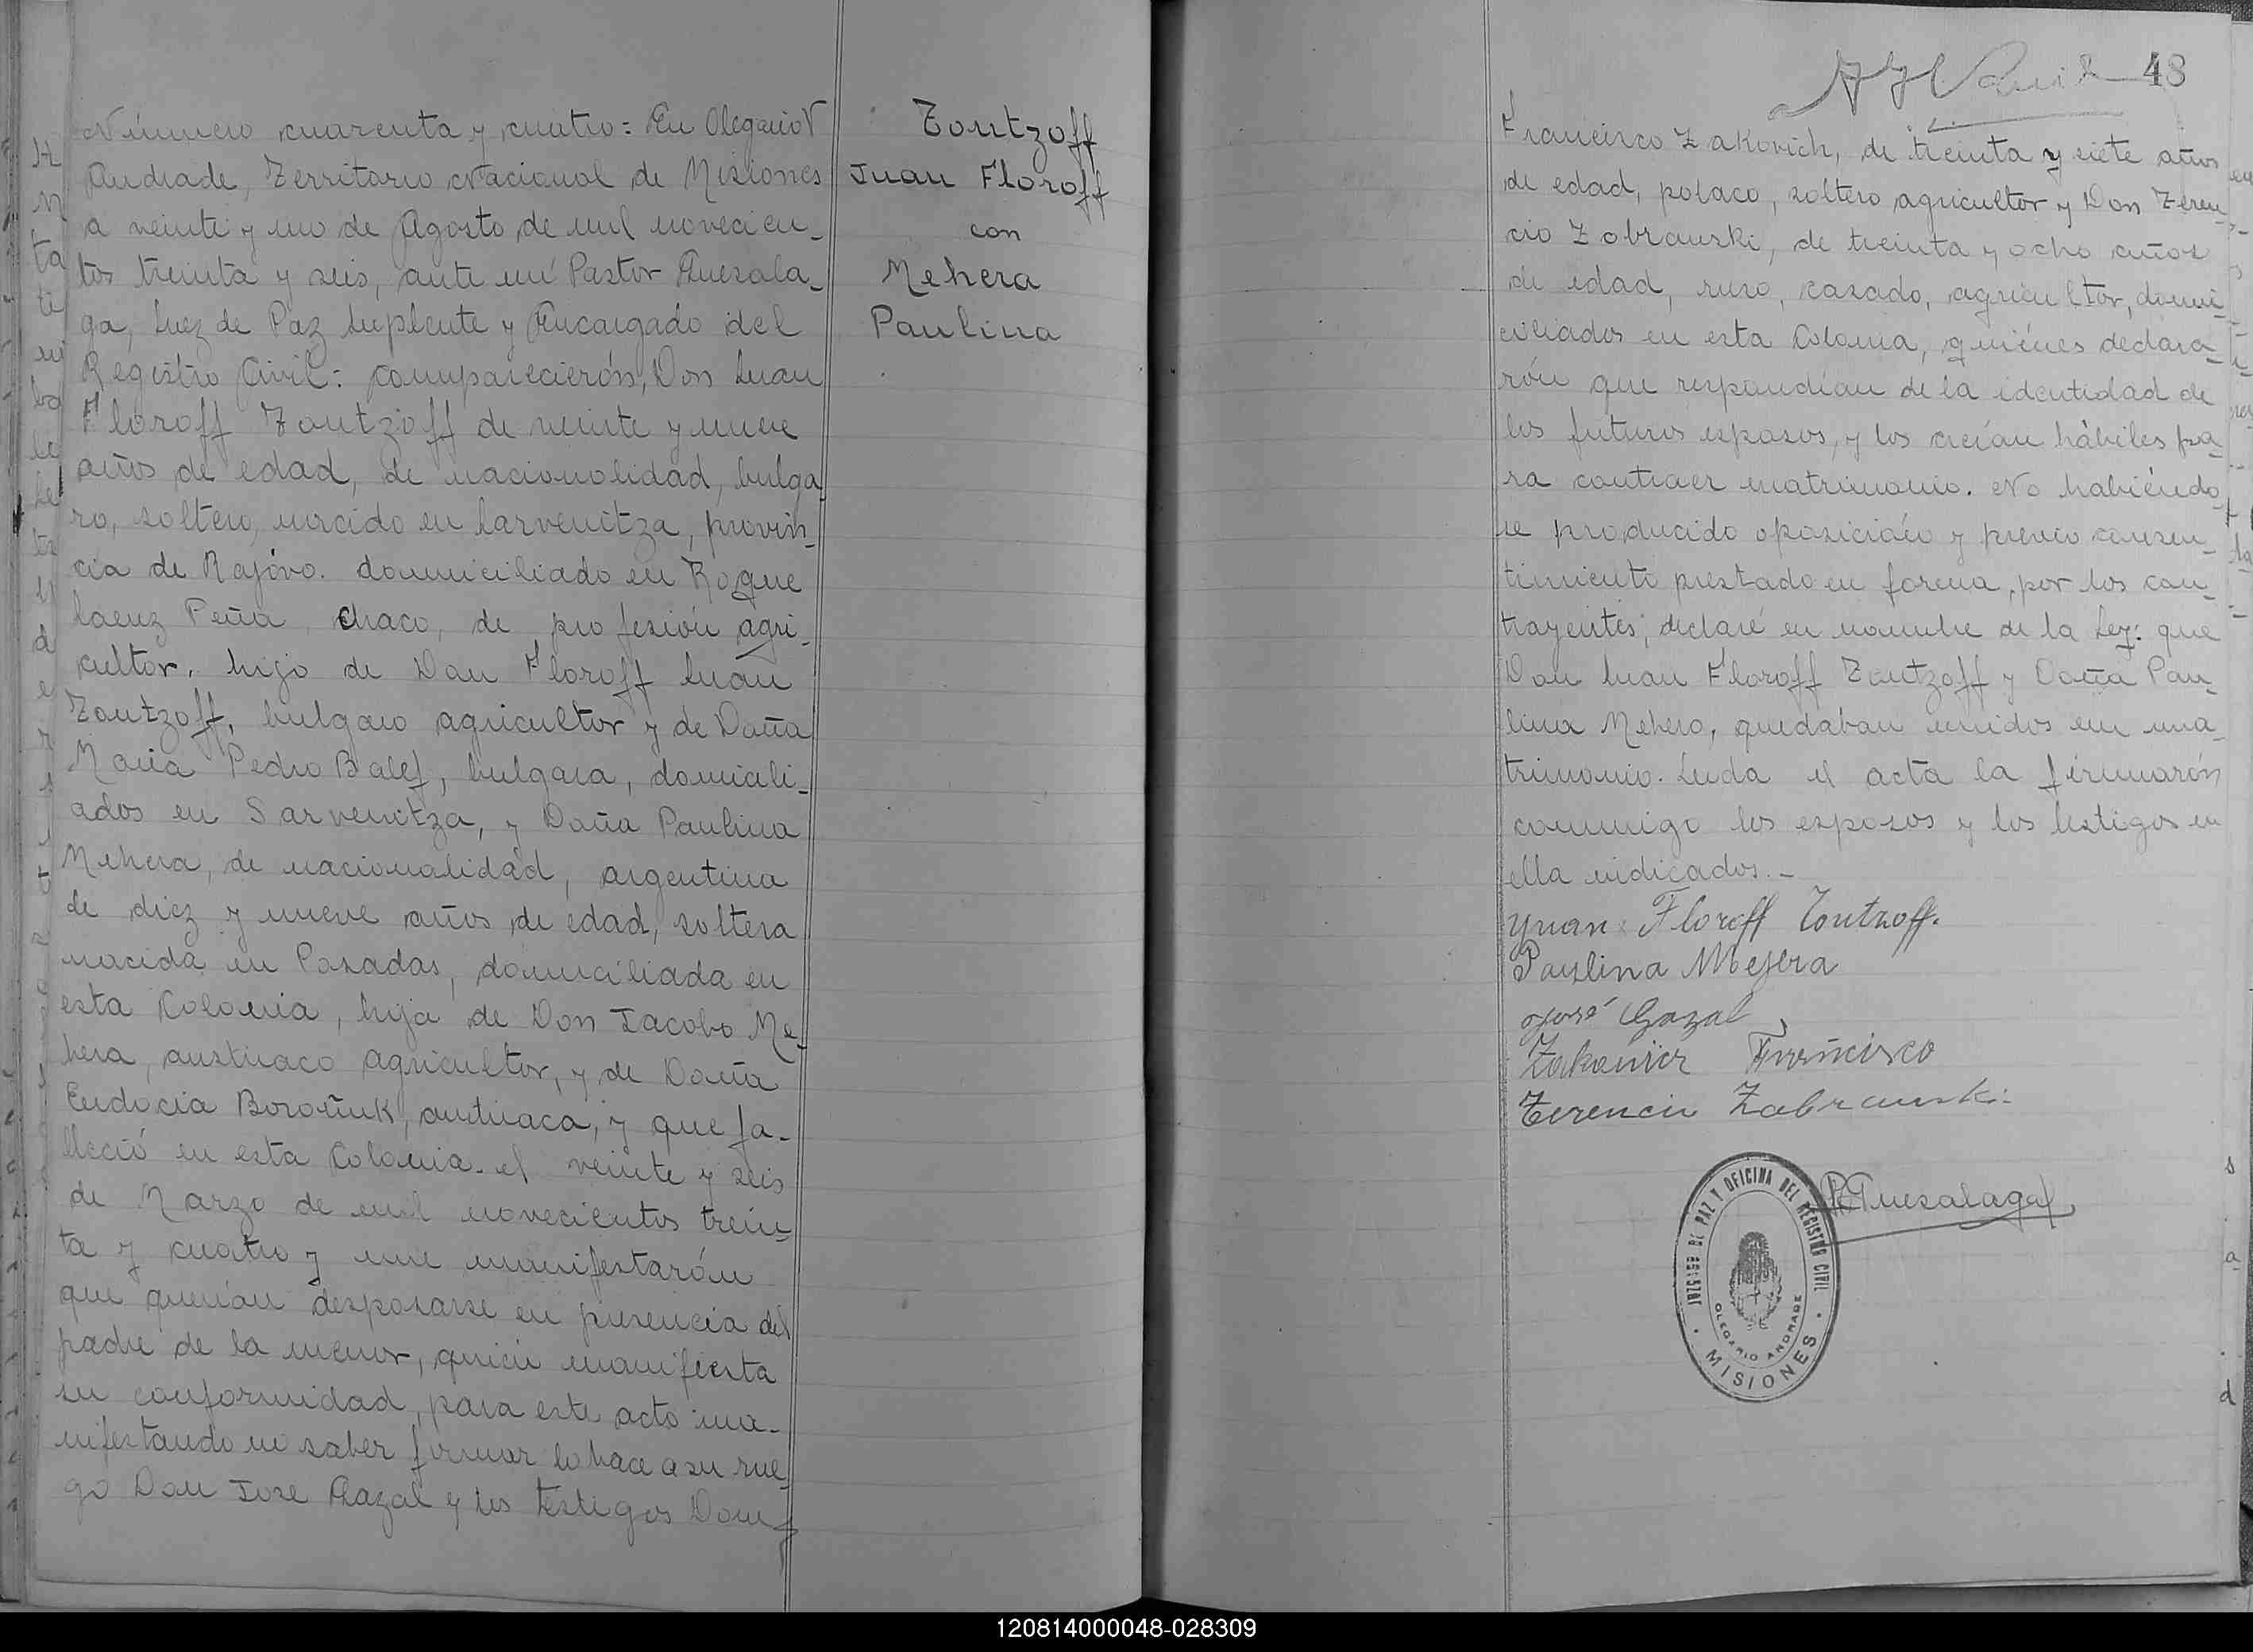 Número cuarenta y cuatro: En Olegario V
Andrade, Territorio Nacional de Misiones
a veinte y uno de Agosto de mil novecien-
tos treinta y seis, ante mí Pastor Guesala-
ga, Juez de Paz Suplente y Encargado del
Registro Civil: comparecierón, Don Juan
Floroff Tontzoff de veinte y nueve
años de edad, de nacionalidad, bulga
ro, soltero, nacido en Sarvenitza, provin-
cia de Rajóvo. domiciliado en Roque
Saenz Peña, Chaco, de profesión agri-
cultor. hijo de Don Floroff Juan
Tontzoff, bulgaro agricultor y de Doña
Maria Pedro Balef, bulgara, domicili-
ados en Sarvenitza, y Doña Paulina
Mehera, de nacionalidad, argentina
de diez y nueve años de edad, soltera
nacida en Posadas, domiciliada en
esta Colonia, hija de Don Jacobo Me-
hera, austriaco agricultor, y de Doña
Eudocia Boroñuk, autriaca, y que fa-
lleció en esta Colonia. el veinte y seis
de Marzo de mil novecientos trein-
ta y cuatro y me manifestarón
que querían desposarse en presencia del
padre de la menor, quién manifiesta
su conformidad, para este acto ma-
nifestando no saber firmar lo hace a su rue-
go Don Jose Gazal y los testigos Don
Tontzoff
Juan Floroff
con
Mehera
Paulina
48
Francisco Zakovich, de treinta y siete años
de edad, polaco, soltero agricultor y Don Teren-
cio Zobrauski, de treinta y ocho años
de edad, ruso, casado, agricultor, domi-
ciliados en esta Colonia, quiénes declara-
rón que respondían de la identidad de
los futuros esposos, y los creían hábiles pa-
ra contraer matrimonio. No habiéndo
se producido oposición y previo consen-
timiento prestado en forma, por los con-
trayentes; declaré en nombre de la Ley: que
Don Juan Floroff Tontzoff y Doña Pau-
lina Mehero, quedaban unidos en ma-
trimonio. Leida el acta la firmarón
conmigo los esposos y los testigos en
ella indicados.-
Yuan Floroff Tontzoff.
Paulina Mejera
José Gazal
Francisco
Terencio Zabrauski
P. Guesalaga
JUZGADO DE PAZ Y OFICINA DEL REGISTRO CIVIL
OLEGARIO ANDRADE
· MISIONES ·
120814000048-028309